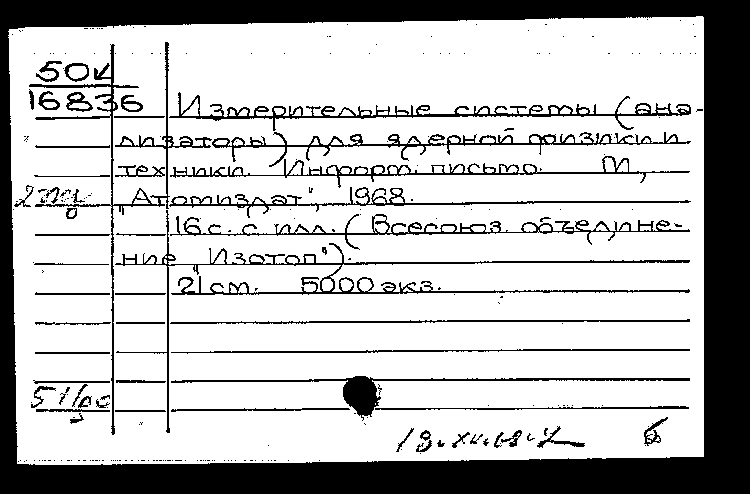 50
16836
Измерительные системы (ана-
лизаторы) для ядерной физики и
техники. Информ. письмо. М,
"Атомиздат", 1968.
16 с. с илл. (Всесоюз. объедине-
ние "Изотоп").
21 см. 5000 экз.